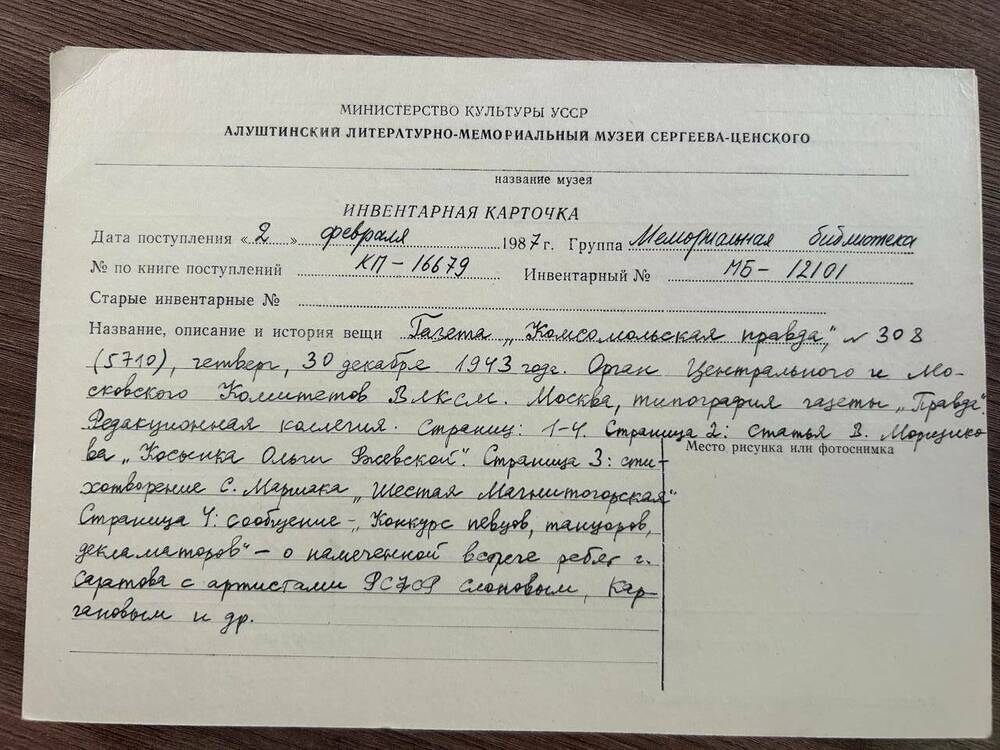 МИНИСТЕРСТВО КУЛЬТУРЫ УССР
АЛУШТИНСКИЙ ЛИТЕРАТУРНО-МЕМОРИАЛЬНЫЙ МУЗЕЙ СЕРГЕЕВА-ЦЕНСКОГО
название музея
ИНВЕНТАРНАЯ КАРТОЧКА
Дата поступления «2» февраля 1987 г. Группа Мемориальная библиотека
№ по книге поступлений КП-16679 Инвентарный № МБ-12101
Старые инвентарные №
Название, описание и история вещи Газета „Комсомольская правда", № 308
(5710), четверг, 30 декабря 1943 года. Орган Центрального и Мо-
сковского Комитетов ВЛКСМ. Москва, типография газеты „Правда".
Редакционная коллегия. Страниц: 1-4. Страница 2: статья В. Морщико
Место рисунка или фотоснимка
ва „Косынка Ольги Ржевской". Страница 3: сти-
хотворение С. Маршака „Шестая Магнитогорская"
Страница 4: сообщение - „Конкурс певцов, танцоров,
декламаторов" - о намеченной встрече ребят г.
Саратова с артистами РСФСР Слоновым, Кар-
гановым и др.